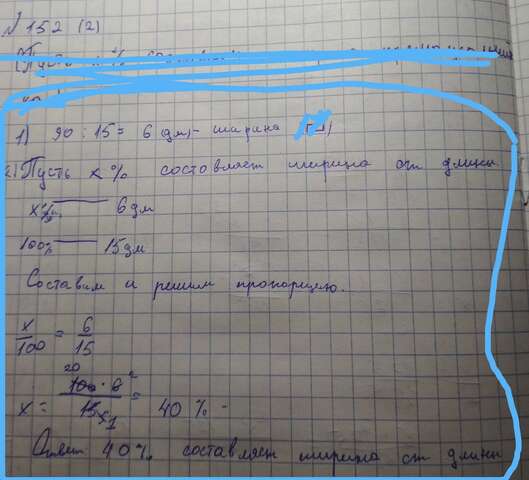 № 152 (2)
Пусть x %
1) 90 : 15 = 6 дм - ширина
2) Пусть x % составляет ширина от длины
x % — 6 дм
100% — 15 дм
Составим и решим пропорцию.
x/100 = 6/15
x = 100 · 6 / 15 = 40 %
Ответ 40% составляет ширина от длины